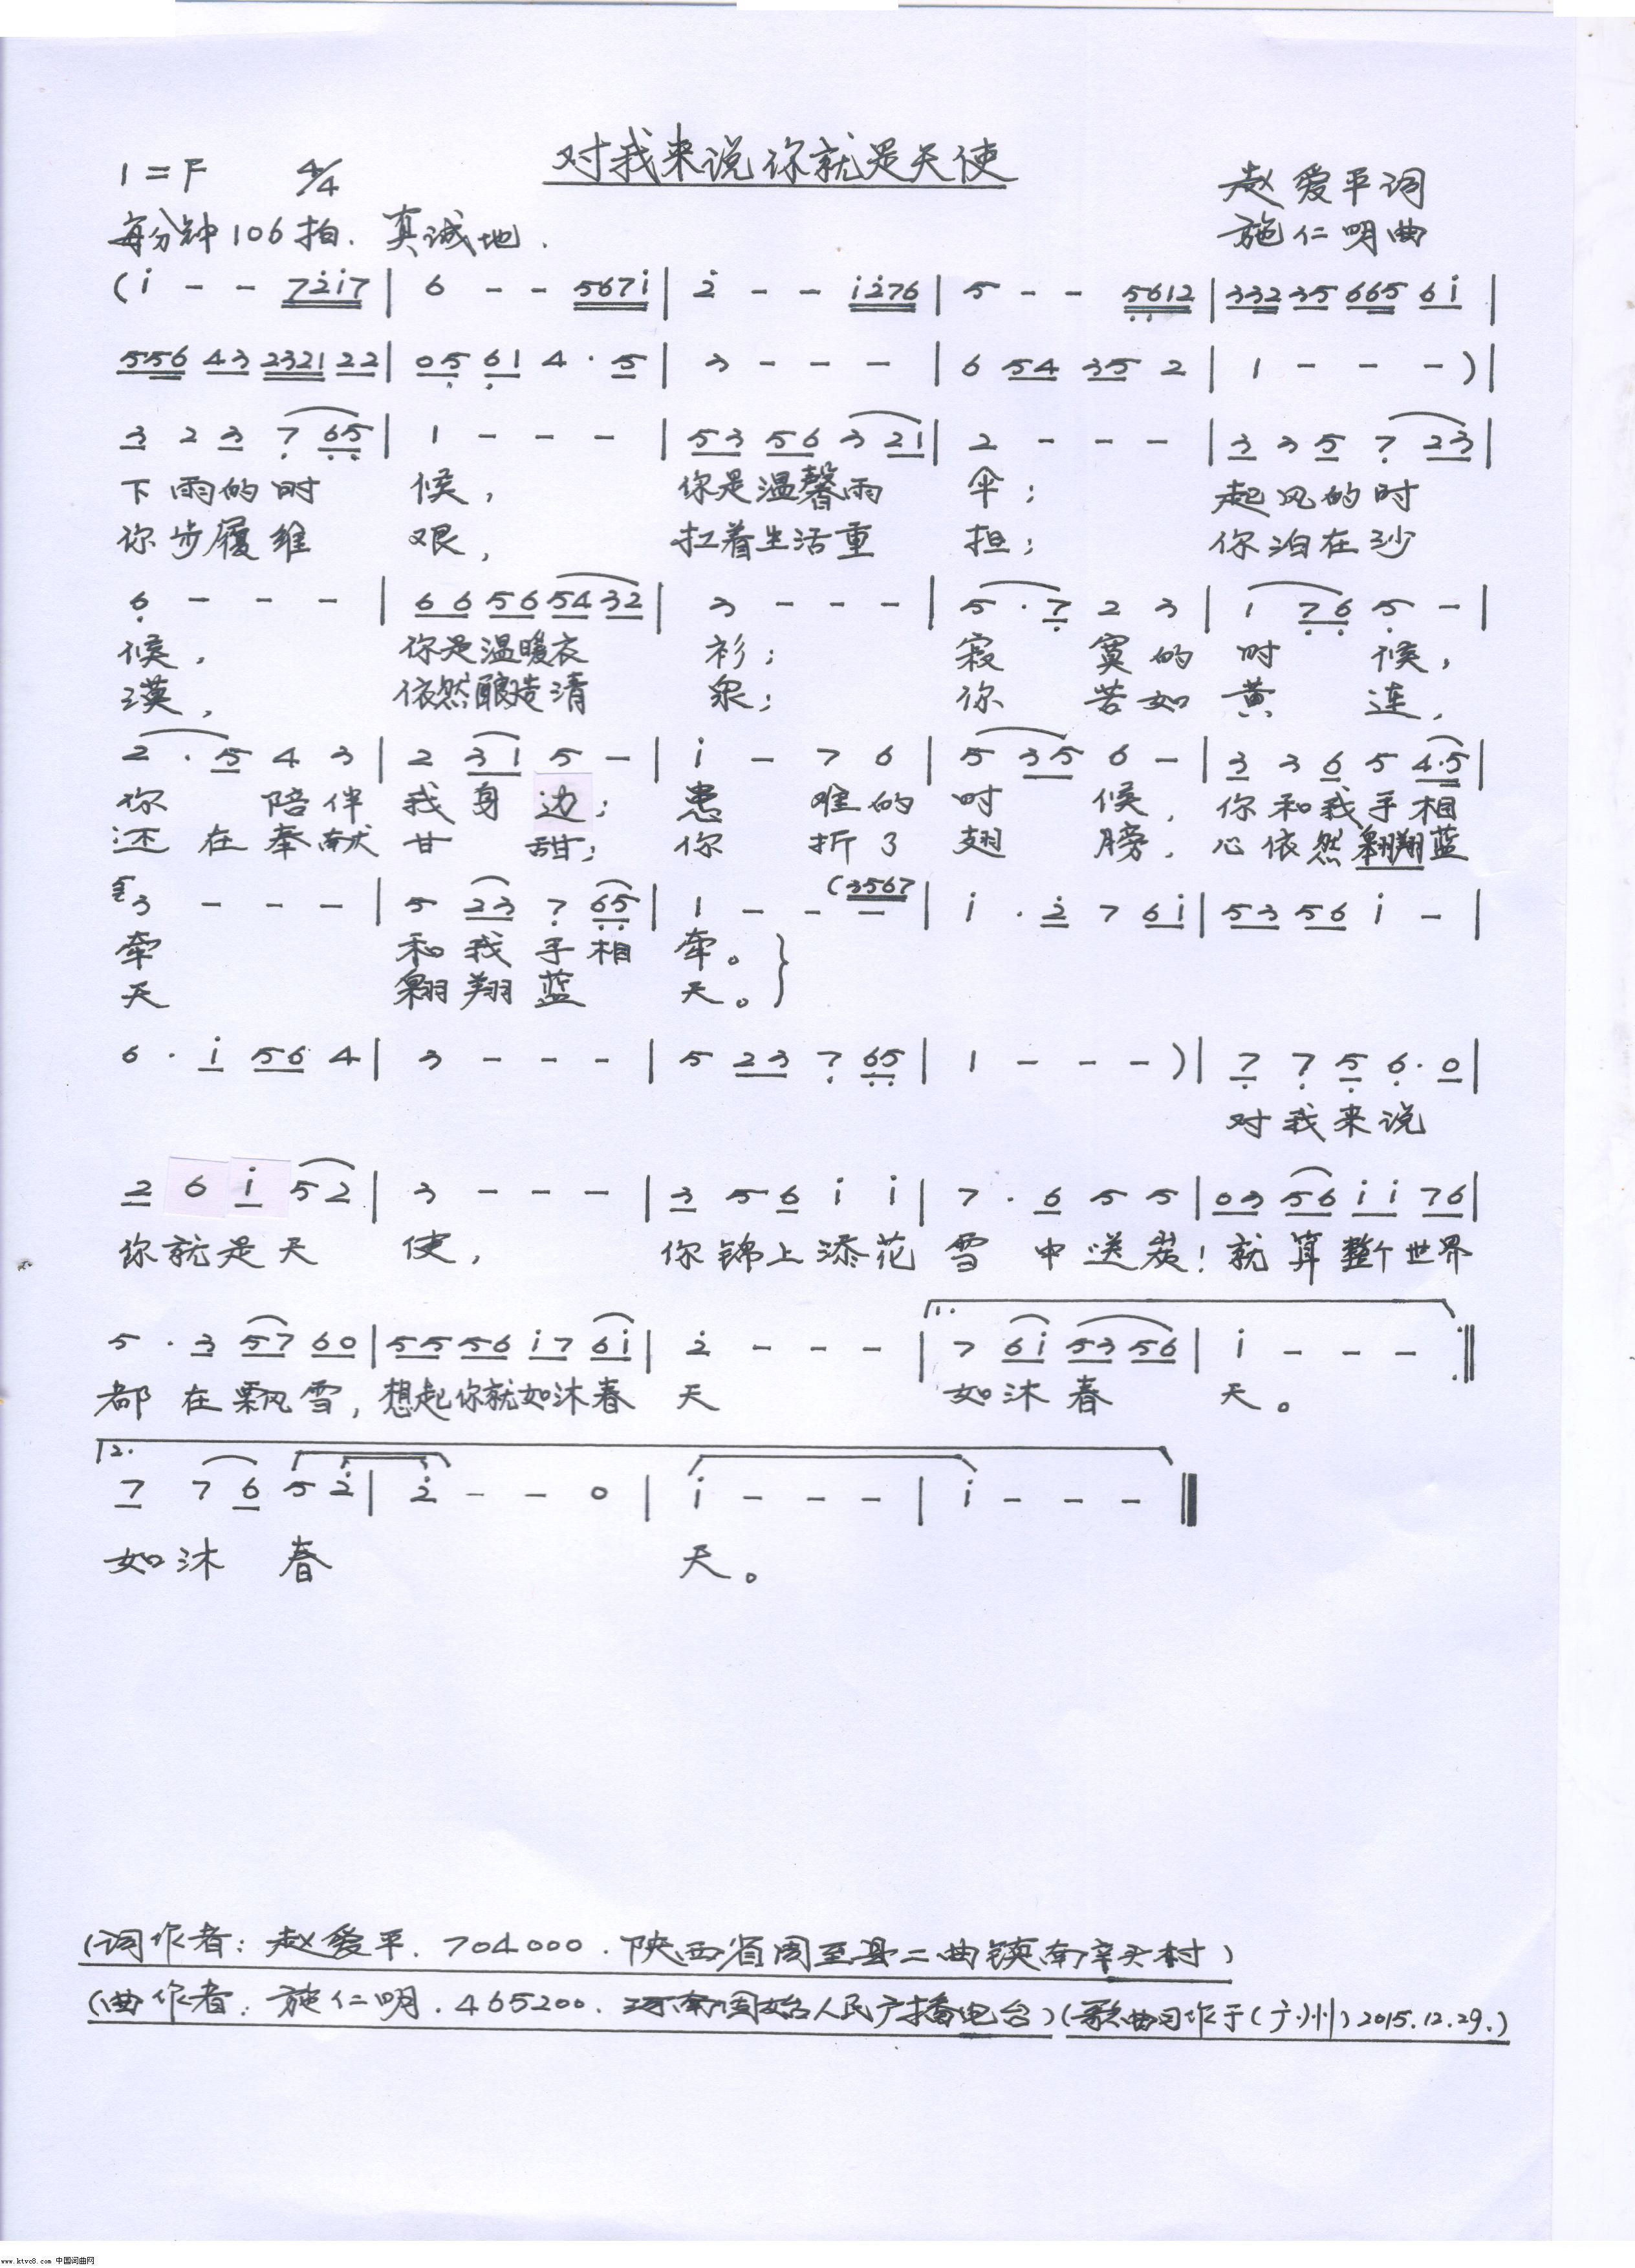 对我来说你就是天使
1=F 4/4
赵爱平词
每分钟106拍. 真诚地.
施仁明曲
(i - - 72i7 | 6 - - 567i | 2 - - i276 | 5 - - 5612 | 332 35 665 6i |
556 43 2321 22 | 05 61 4 · 5 | 3 - - - | 6 54 35 2 | 1 - - - ) |
3 2 3 7 65 | 1 - - - | 53 56 3 21 | 2 - - - | 3 3 5 7 23 |
下雨的时 候, 你是温馨雨 伞; 起风的时
你步履维 艰, 扛着生活重 担; 你泊在沙
6 - - - | 66 56 54 32 | 3 - - - | 5 · 7 2 3 | 1 76 5 - |
候, 你是温暖衣 衫; 寂 寞的 时 候,
漠, 依然酿造清 泉; 你 苦如 黄 连,
2 · 5 4 3 | 2 31 5 - | i - 7 6 | 5 35 6 - | 3 3 6 5 4·5 |
你 陪伴 我身边; 患 难的 时 候, 你和我手相
还在奉献 甘 甜; 你 折了 翅 膀, 心依然翱翔蓝
3 - - - | 5 23 7 65 | 1 - - - (3567 | i · 2 7 6i | 53 56 i - |
牵 和我手相 牵。}
天 翱翔蓝 天。}
6 · i 56 4 | 3 - - - | 5 23 7 65 | 1 - - - ) | 7 7 5 6 · 0 |
对我来说
2 6 i 52 | 3 - - - | 3 5 6 i i | 7 · 6 5 5 | 03 56 i i 76 |
你就是天 使, 你锦上添花 雪 中送炭! 就算整个世界
1.
5 · 3 57 60 | 55 56 i7 6i | 2 - - - | 7 6i 53 56 | i - - - :||
都在飘雪, 想起你就如沐春 天 如沐春 天。
2.
7 7 6 5 2 | 2 - - 0 | i - - - | i - - - ||
如沐 春 天。
(词作者: 赵爱平. 704000. 陕西省周至县二曲镇南辛头村)
(曲作者: 施仁明. 465200. 河南固始人民广播电台) (歌曲习作于(广州) 2015.12.29.)
www.ktvc8.com 中国词曲网